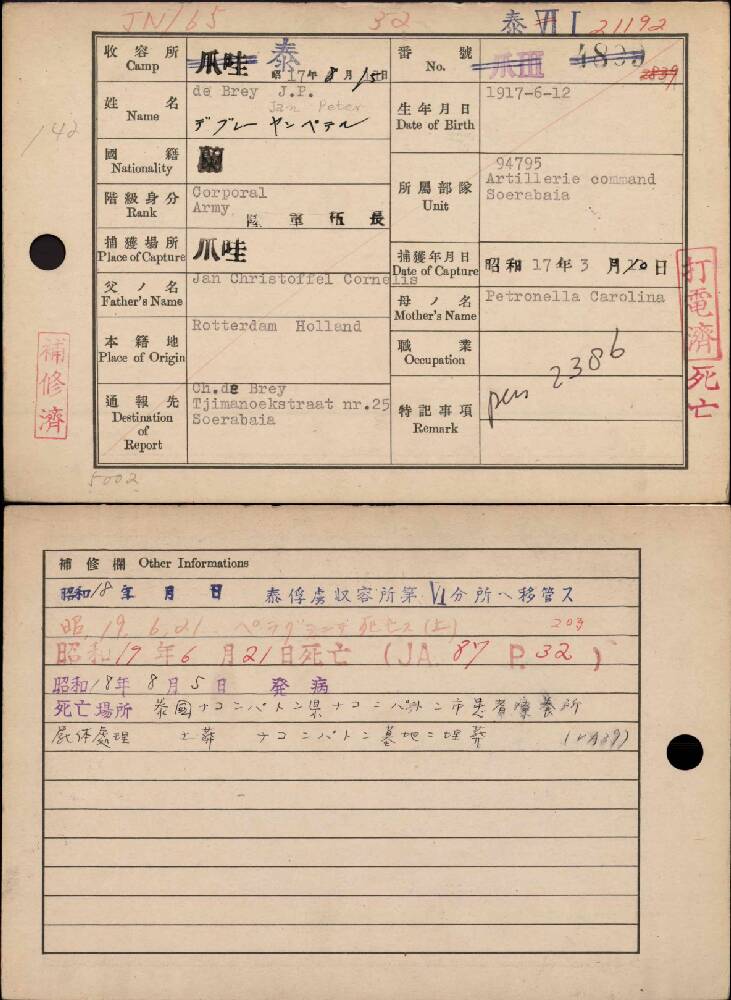 JN/65
32
泰 VII I 21192
収容所
Camp
爪哇 泰
昭17年8月15日
番號
No.
爪III 4839
2839
姓名
Name
de Brey J.P.
Jan Peter
デブレー ヤンペテル
生年月日
Date of Birth
1917-6-12
142
國籍
Nationality
蘭
階級身分
Rank
Corporal
Army
陸軍伍長
所屬部隊
Unit
94795
Artillerie command
Soerabaia
捕獲場所
Place of Capture
爪哇
捕獲年月日
Date of Capture
昭和17年3月10日
父ノ名
Father's Name
Jan Christoffel Cornelis
母ノ名
Mother's Name
Petronella Carolina
本籍地
Place of Origin
Rotterdam Holland
職業
Occupation
通報先
Destination
of
Report
Ch.de Brey
Tjimanoekstraat nr.25
Soerabaia
特記事項
Remark
2386
補修濟
打電濟
死亡
5002
補修欄 Other Informations
昭和18年 月 日 泰俘虜収容所第VI分所ヘ移管ス
昭.19.6.21. 203
昭和19年6月21日死亡 (JA.87 P.32)
昭和18年8月5日 発病
死亡場所 泰國ナコンパトン県ナコンパトン市患者療養所
屍体處理 土葬 ナコンパトン墓地ニ埋葬